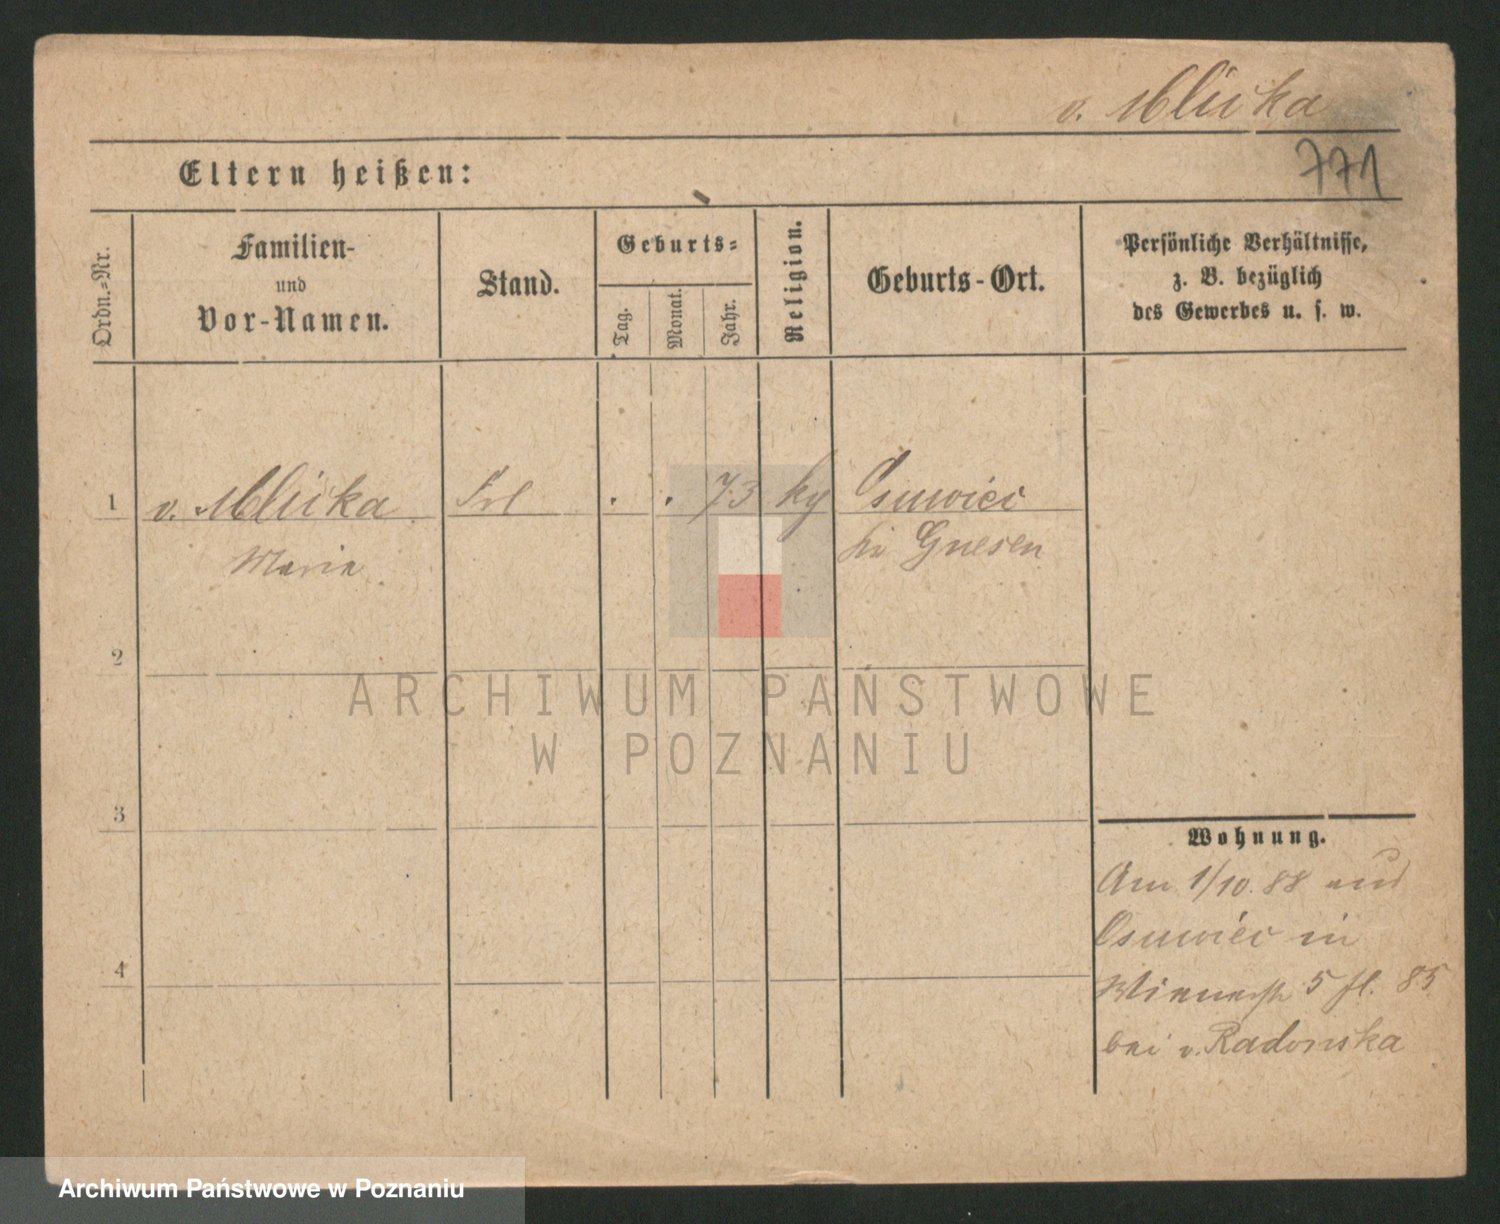 v. Mlicka
771
Eltern heißen:
Ordn.-Nr.
Familien-
und
Vor-Namen.
Stand.
Geburts-
Tag.
Monat.
Jahr.
Religion.
Geburts-Ort.
Persönliche Verhältnisse,
z. B. bezüglich
des Gewerbes u. s. w.
1 v. Mlicka Frl . . 73 Osuwiec
Marie Gnesen
2
3
4
Wohnung.
Am 1/10. 88 aus
Osuwiec in
5 fl. 85
bei v. Radonska
ARCHIWUM PAŃSTWOWE
W POZNANIU
Archiwum Państwowe w Poznaniu